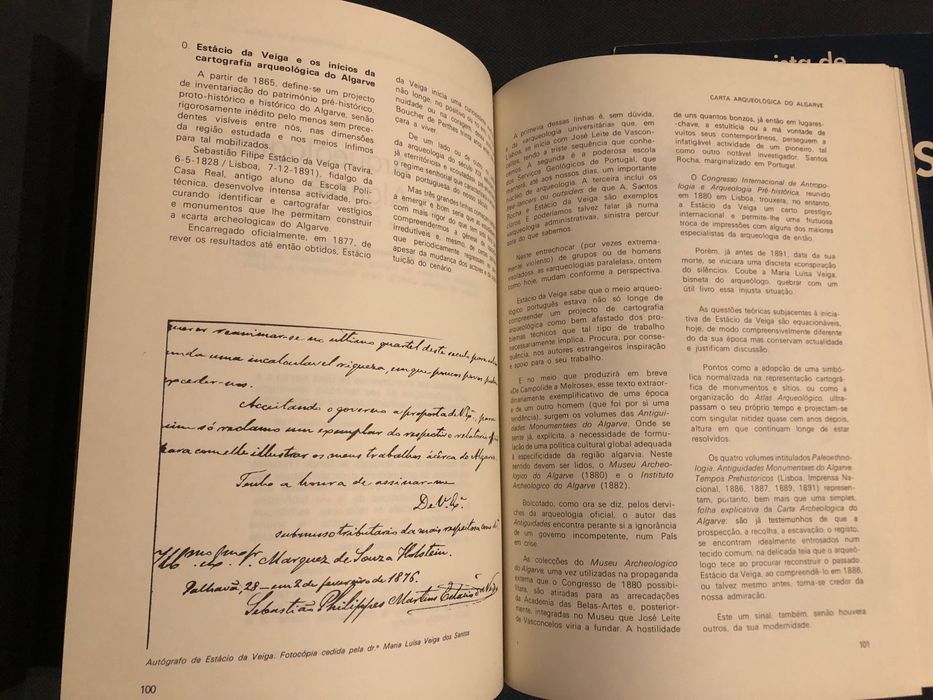 0. Estácio da Veiga e os inícios da
cartografia arqueológica do Algarve
A partir de 1865, define-se um projecto
de inventariação do património pré-histórico,
proto-histórico e histórico do Algarve, senão
rigorosamente inédito pelo menos sem prece-
dentes visíveis entre nós, nas dimensões
da região estudada e nos meios ínfimos
para tal mobilizados.
Sebastião Filipe Estácio da Veiga (Tavira,
6-5-1828 / Lisboa, 7-12-1891), fidalgo da
Casa Real, antigo aluno da Escola Poli-
técnica, desenvolve intensa actividade, pro-
curando identificar e cartografar vestígios
e monumentos que lhe permitam construir
a «carta archeologica» do Algarve.
Encarregado oficialmente, em 1877, de
rever os resultados até então obtidos, Estácio
da Veiga inicia uma
não longe, no positivo
nuidade ou na coragem,
Boucher de Perthes
cara a viver.
De um lado ou de outro,
da arqueologia do século
já «territórios e «coutadas»
o regime senhorial que caracteriza
logia portuguesa do nosso século
Mas três grandes linhas começam
a emergir e bom seria que se estudassem
com mais rigor do que tem sido
compreendermos a génese de
irredutíveis e, mesmo, de certas
que periodicamente regressam
apesar da mudança dos actores e da
tuição do cenário.
no ultimo quartel deste seculo
uma incalculavel riqueza, em que poucos povos
exceder-nos.
Acceitando o governo a proposta de V. Exª,
só reclamo um exemplar do respectivo relatorio
para com elle illustrar os meus trabalhos ácêrca do Algarve.
Tenho a honra de assinar-me
De V. Exª.
submisso tributario da mais respeitosa
Marquez de Souza Holstein.
Palhavã, 28 de fevereiro de 1876.
Sebastião Philippes Martins Estacio da Veiga
Autógrafo de Estácio da Veiga. Fotocópia cedida pela dr.ª Maria Luísa Veiga dos Santos
100
CARTA ARQUEOLÓGICA DO ALGARVE
A primeira dessas linhas é, sem dúvida,
a da «arqueologia universitária» que, em
Lisboa, se inicia com José Leite de Vascon-
celos, tendo a triste sequência que conhe-
cemos. A segunda é a poderosa escola
dos Serviços Geológicos de Portugal, que
manterá, até aos nossos dias, um importante
núcleo de arqueologia. A terceira inclui os
free-lancers ou outsiders de que A. Santos
Rocha e Estácio da Veiga são exemplos
E poderíamos talvez falar já numa
«arqueologia administrativa», sinistra percur
sora do que sabemos.
Neste entrechocar (por vezes extrema-
mente violento) de grupos ou de homens
isolados, as «arqueologias paralelas», ontem
como hoje, mudam conforme a perspectiva.
Estácio da Veiga sabe que o meio arqueo-
lógico português estava não só longe de
compreender um projecto de cartografia
arqueológica como bem afastado dos pro-
blemas técnicos que tal tipo de trabalho
necessariamente implica. Procura, por conse-
quência, nos autores estrangeiros inspiração
e apoio para o seu trabalho.
E no meio que produzirá em breve
«De Campolide a Melrose», esse texto extraor-
dinariamente exemplificativo de uma época
e de um outro homem (que foi por si uma
tendência), surgem os volumes das Antigui-
dades Monumentaes do Algarve. Onde se
sente já, explícita, a necessidade de formu-
lação de uma política cultural global adequada
à especificidade da região algarvia. Neste
sentido devem ser lidos, o Museu Archeo-
logico do Algarve (1880) e o Instituto
Archeologico do Algarve (1882).
Boicotado, como ora se diz, pelos dervi-
ches da arqueologia oficial, o autor das
Antiguidades encontra perante si a ignorância
de um governo incompetente, num País
em crise.
As colecções do Museu Archeologico
do Algarve, uma vez utilizadas na propaganda
externa que o Congresso de 1880 possibi-
litara, são atiradas para as arrecadações
da Academia das Belas-Artes e, posterior-
mente, integradas no Museu que José Leite
de Vasconcelos viria a fundar. A hostilidade
de uns quantos bonzos, já então em lugares-
-chave, a estultícia ou a má vontade de
vultos seus contemporâneos, perseguem a
infatigável actividade de um pioneiro, tal
como outro notável investigador, Santos
Rocha, marginalizado em Portugal.
O Congresso Internacional de Antropo-
logia e Arqueologia Pré-histórica, reunido
em 1880 em Lisboa, trouxera, no entanto,
a Estácio da Veiga um certo prestígio
internacional e permite-lhe uma frutuosa
troca de impressões com alguns dos maiores
especialistas da arqueologia de então.
Porém, já antes de 1891, data da sua
morte, se iniciara uma discreta «conspiração
do silêncio». Coube a Maria Luísa Veiga,
bisneta do arqueólogo, quebrar com um
útil livro essa injusta situação.
As questões teóricas subjacentes à inicia-
tiva de Estácio da Veiga são equacionáveis,
hoje, de modo compreensivelmente diferente
do da sua época mas conservam actualidade
e justificam discussão.
Pontos como a adopção de uma simbó-
lica normalizada na representação cartográ-
fica de monumentos e sítios, ou como a
organização do Atlas Arqueológico, ultra-
passam o seu próprio tempo e projectam-se
com singular nitidez quase cem anos depois,
altura em que continuam longe de estar
resolvidos.
Os quatro volumes intitulados Paleoethno-
logia. Antiguidades Monumentaes do Algarve.
Tempos Prehistoricos (Lisboa, Imprensa Na-
cional, 1886, 1887, 1889, 1891) represen-
tam, portanto, bem mais que uma simples
folha explicativa da Carta Archeologica do
Algarve: são já testemunhos de que a
prospecção, a recolha, a escavação, o registo,
se encontram idealmente entrosados num
tecido comum, na delicada teia que o arqueó-
logo tece ao procurar reconstruir o passado.
Estácio da Veiga, ao compreendê-lo em 1886,
ou talvez mesmo antes, torna-se credor da
nossa admiração.
Este um sinal, também, senão houvera
outros, da sua modernidade.
101